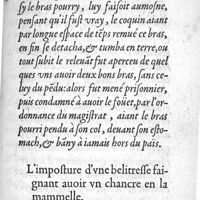 sy le bras pourry, luy faisoit aumosne,
pensant qu'il fust vray, le coquin aiant
par longue espace de tẽps remué ce bras,
en fin se detacha, & tumba en terre, ou
tout subit le releuãt fut aperceu de quel
ques vns auoir deux bons bras, sans ce-
luy du pẽdu: alors fut mené prisonnier,
puis condamné à auoir le foüet, par l'or-
donnance du magistrat, aiant le bras
pourri pendu à son col, deuant son esto-
mach, & bãny à iamais hors du païs.
L'imposture d'vne belitresse fai-
gnant auoir vn chancre en la
mammelle.